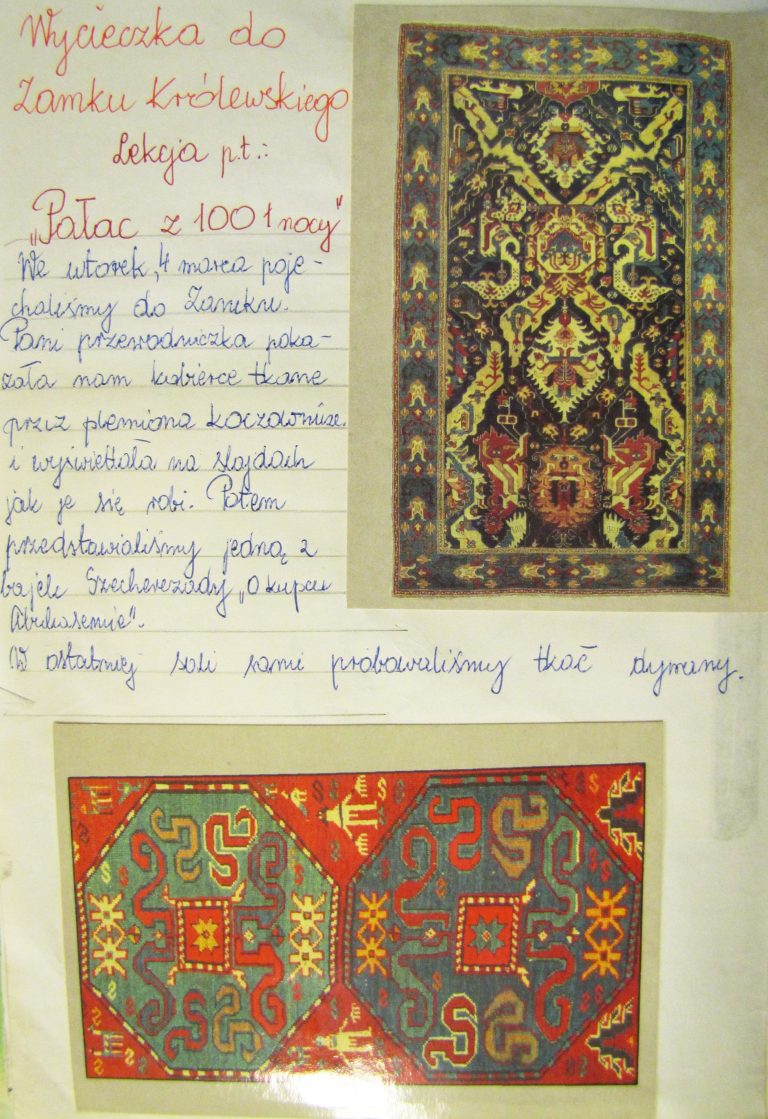 Wycieczka do
Zamku Królewskiego
Lekcja p.t.:
„Pałac z 1001 nocy"
We wtorek, 4 marca poje-
chaliśmy do Zamku.
Pani przewodniczka poka-
zała nam kobierce tkane
przez plemiona koczownicze.
i wyświetlała na slajdach
jak je się robi. Potem
przedstawialiśmy jedną z
bajek Szecherezady „O kupcu
Abukasemie".
W ostatniej sali sami próbowaliśmy tkać dywany.